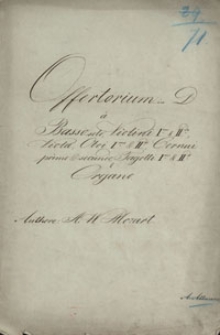 29
71
Offertorium in D
a
Basso solo Violino Imo & IIdo
Viola, Oboi Imo & IIdo Cornu
primo secundo Fagotti Imo & IIdo
e
Organo
Authore A. W. Mozart